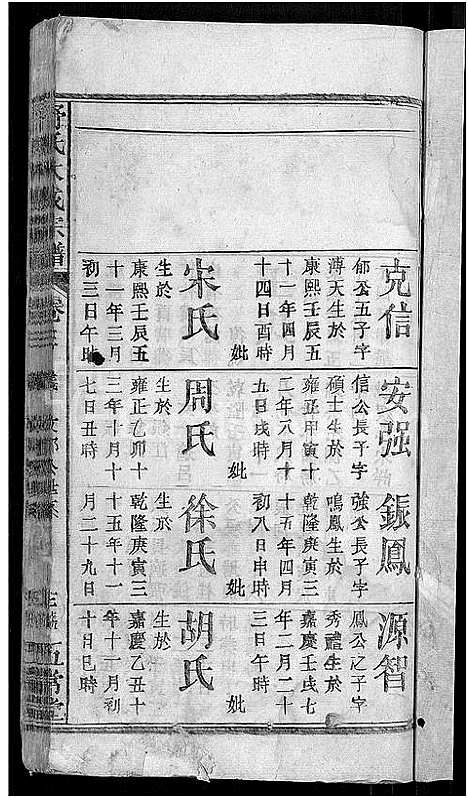 克信
郁公五子字
溥天生於
康熙壬辰五
十一年四月
十四日酉時
妣
宋氏
生於
康熙壬辰五
十一年三月
初三日午時
安强
信公長子字
碩士生於
雍正甲寅十
二年八月十
九日戌時
妣
周氏
生於
雍正乙卯十
三年十月十
七日丑時
鋠鳳
強公長子字
鳴鳳生於
乾隆庚寅三
十五年四月
初八日申時
妣
徐氏
生於
乾隆庚寅三
十五年十一
月二十九日
源智
鳳公之子字
秀禮生於
嘉慶壬戌七
年二月二十
三日午時
妣
胡氏
生於
嘉慶乙丑十
年十一月初
十日巳時
舒氏大成宗譜
卷